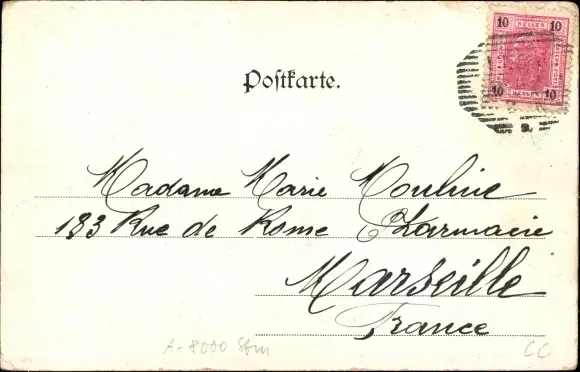 10 10
HELLER
10 10
HELLER
Postkarte.
Madame Marie Mouline
183 Rue de Rome Pharmacie
Marseille
France
A-8000 Stm
CC